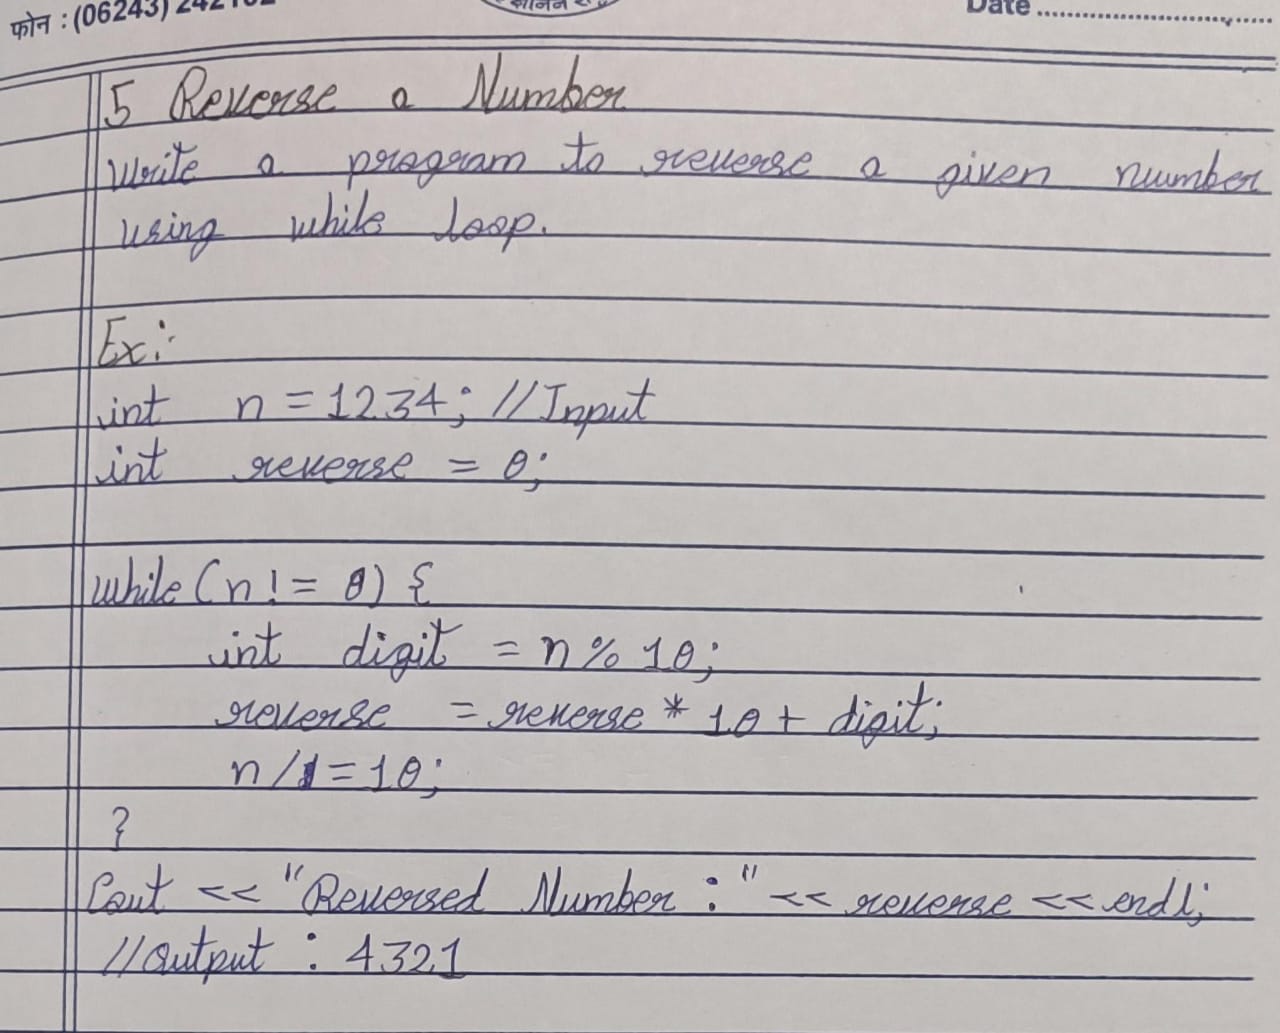 फोन : (06243) 242
Date
5 Reverse a Number
Write a program to reverse a given number
using while loop.
Ex:-
int n = 1234; //Input
int reverse = 0;
while (n != 0) {
int digit = n % 10;
reverse = reverse * 10 + digit;
n /= 10;
}
Cout << "Reversed Number : " << reverse << endl;
//Output : 4321